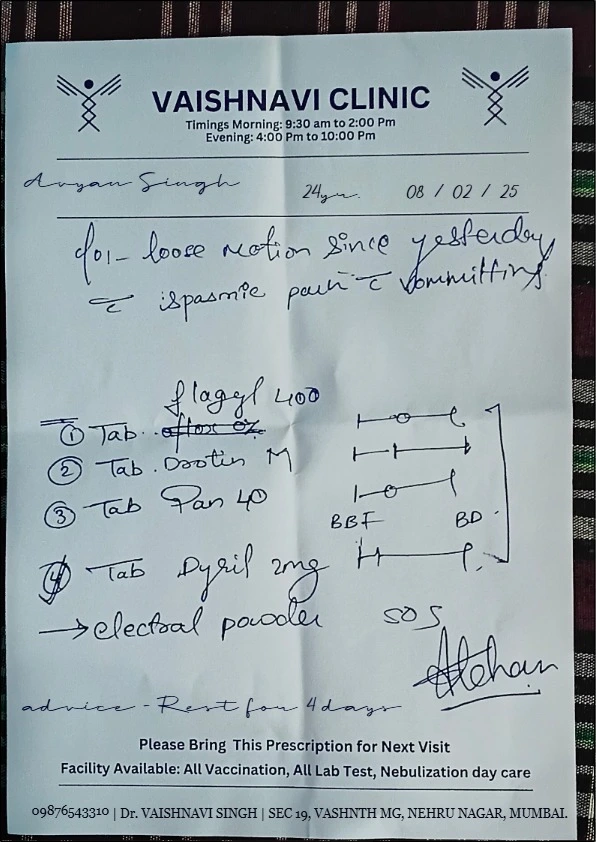 VAISHNAVI CLINIC
Timings Morning: 9:30 am to 2:00 Pm
Evening: 4:00 Pm to 10:00 Pm
Aryan Singh 24yr. 08 / 02 / 25
loose motion since yesterday
ispasmic pain c vommitting
flagyl 400
① Tab.
② Tab. M
③ Tab Pan 40
BBF BD
④ Tab 2mg
→ electral powder SOS
advice - Rest for 4 days
Please Bring This Prescription for Next Visit
Facility Available: All Vaccination, All Lab Test, Nebulization day care
09876543310 | Dr. VAISHNAVI SINGH | SEC 19, VASHNTH MG, NEHRU NAGAR, MUMBAI.